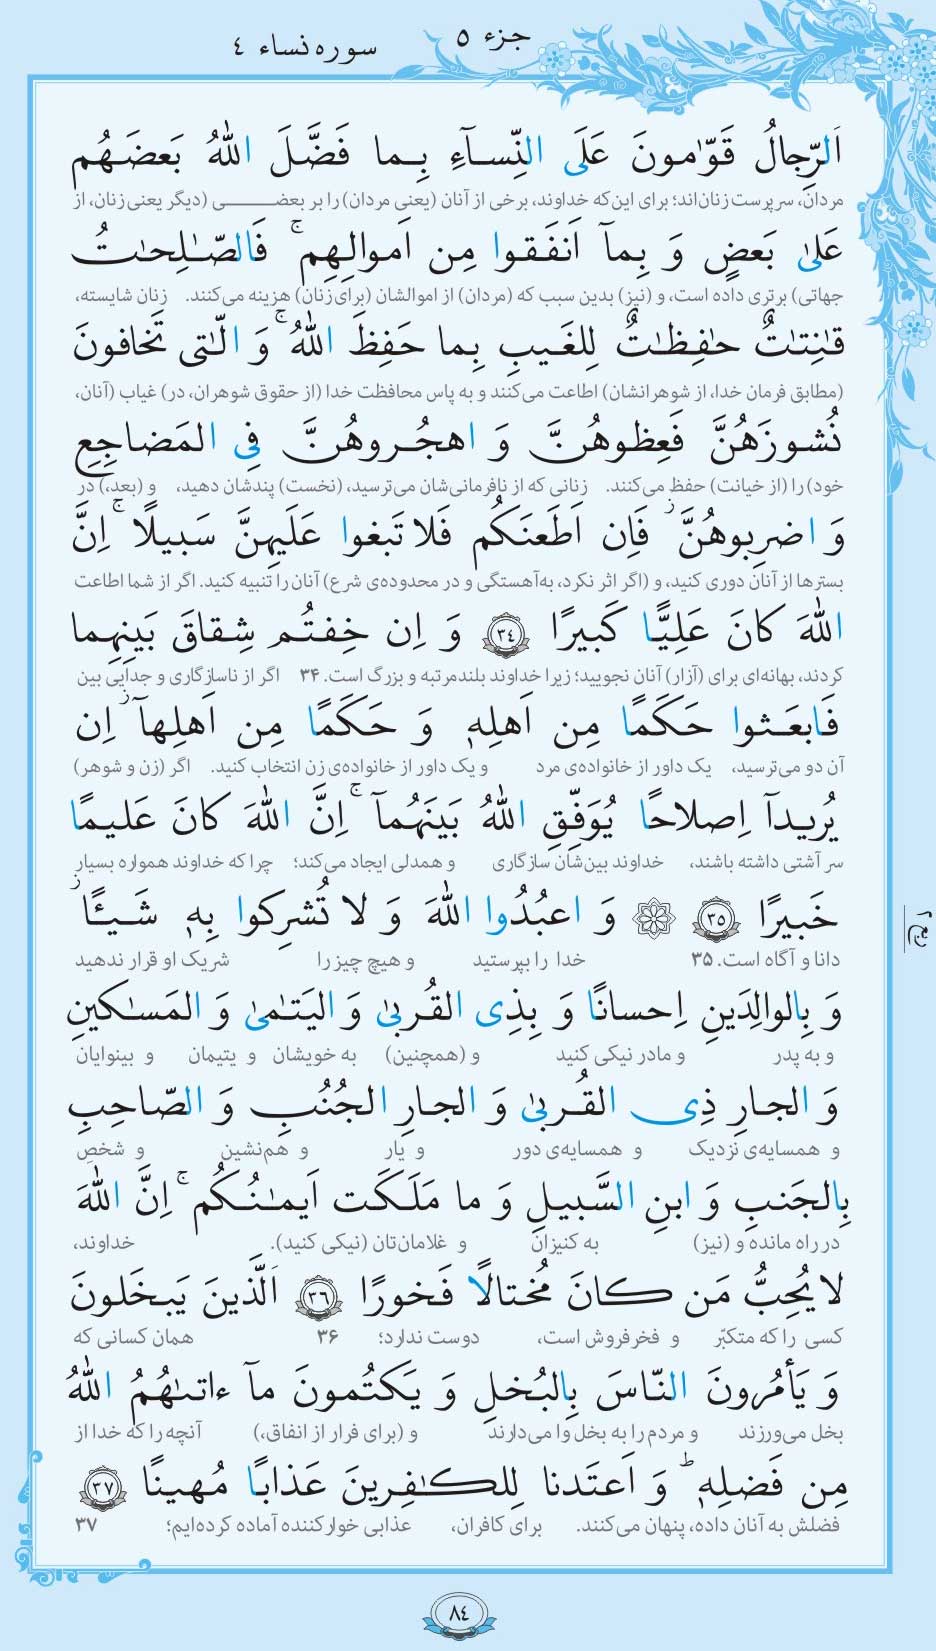 جزء ٥
سوره نساء ٤
اَلرِّجالُ قَوّٰمونَ عَلَى النِّسآءِ بِـما فَضَّلَ اللّٰهُ بَعضَهُم
مردان، سرپرست زنان‌اند؛ برای این‌که خداوند، برخی از آنان (یعنی مردان) را بر بعضی (دیگر یعنی زنان، از
عَلىٰ بَعضٍ وَ بِمآ اَنفَقوا مِن اَموالِهِم ۚ فَالصّٰلِحٰتُ
جهاتی) برتری داده است، و (نیز) بدین سبب که (مردان) از اموالشان (برای زنان) هزینه می‌کنند. زنان شایسته،
قٰنِتٰتٌ حٰفِظٰتٌ لِلغَيبِ بِما حَفِظَ اللّٰهُ ۚ وَ الّٰتى تَخافونَ
(مطابق فرمان خدا، از شوهرانشان) اطاعت می‌کنند و به پاس محافظت خدا (از حقوق شوهران، در) غیاب (آنان،
نُشوزَهُنَّ فَعِظوهُنَّ وَ اهجُروهُنَّ فِى المَضاجِعِ
خود) را (از خیانت) حفظ می‌کنند. زنانی که از نافرمانی‌شان می‌ترسید، (نخست) پندشان دهید، و (بعد،) در
وَ اضرِبوهُنَّ ۖ فَاِن اَطَعنَكُم فَلا تَبغوا عَلَيهِنَّ سَبيلًا ۚ اِنَّ
بسترها از آنان دوری کنید، و (اگر اثر نکرد، به‌آهستگی و در محدوده‌ی شرع) آنان را تنبیه کنید. اگر از شما اطاعت
اللّٰهَ كانَ عَلِيًّا كَبيرًا ﴿٣٤﴾ وَ اِن خِفتُم شِقاقَ بَينِهِما
کردند، بهانه‌ای برای (آزار) آنان نجویید؛ زیرا خداوند بلندمرتبه و بزرگ است. ۳۴ اگر از ناسازگاری و جدایی بین
فَابعَثوا حَكَمًا مِن اَهلِهٖ وَ حَكَمًا مِن اَهلِهآ ۖ اِن
آن دو می‌ترسید، یک داور از خانواده‌ی مرد و یک داور از خانواده‌ی زن انتخاب کنید. اگر (زن و شوهر)
يُريدآ اِصلاحًا يُوَفِّقِ اللّٰهُ بَينَهُمآ ۚ اِنَّ اللّٰهَ كانَ عَليمًا
سر آشتی داشته باشند، خداوند بین‌شان سازگاری و همدلی ایجاد می‌کند؛ چرا که خداوند همواره بسیار
خَبيرًا ﴿٣٥﴾ وَ اعبُدُوا اللّٰهَ وَ لا تُشرِكوا بِهٖ شَيئًا ۖ
دانا و آگاه است. ۳۵ خدا را بپرستید و هیچ چیز را شریک او قرار ندهید
وَ بِالوالِدَينِ اِحسانًا وَ بِذِى القُربىٰ وَ اليَتٰمىٰ وَ المَسٰكينِ
و به پدر و مادر نیکی کنید و (همچنین) به خویشان و یتیمان و بینوایان
وَ الجارِ ذِى القُربىٰ وَ الجارِ الجُنُبِ وَ الصّاحِبِ
و همسایه‌ی نزدیک و همسایه‌ی دور و یار و هم‌نشین و شخصِ
بِالجَنبِ وَ ابنِ السَّبيلِ وَ ما مَلَكَت اَيمٰنُكُم ۚ اِنَّ اللّٰهَ
در راه مانده و (نیز) به کنیزان و غلامان‌تان (نیکی کنید). خداوند،
لا يُحِبُّ مَن كانَ مُختالًا فَخورًا ﴿٣٦﴾ اَلَّذينَ يَبخَلونَ
کسی را که متکبّر و فخرفروش است، دوست ندارد؛ ۳۶ همان کسانی که
وَ يَأمُرونَ النّاسَ بِالبُخلِ وَ يَكتُمونَ مآ ءاتىٰهُمُ اللّٰهُ
بخل می‌ورزند و مردم را به بخل وا می‌دارند و (برای فرار از انفاق،) آنچه را که خدا از
مِن فَضلِهٖ ۗ وَ اَعتَدنا لِلكٰفِرينَ عَذابًا مُهينًا ﴿٣٧﴾
فضلش به آنان داده، پنهان می‌کنند. برای کافران، عذابی خوارکننده آماده کرده‌ایم؛ ۳۷
٨٤